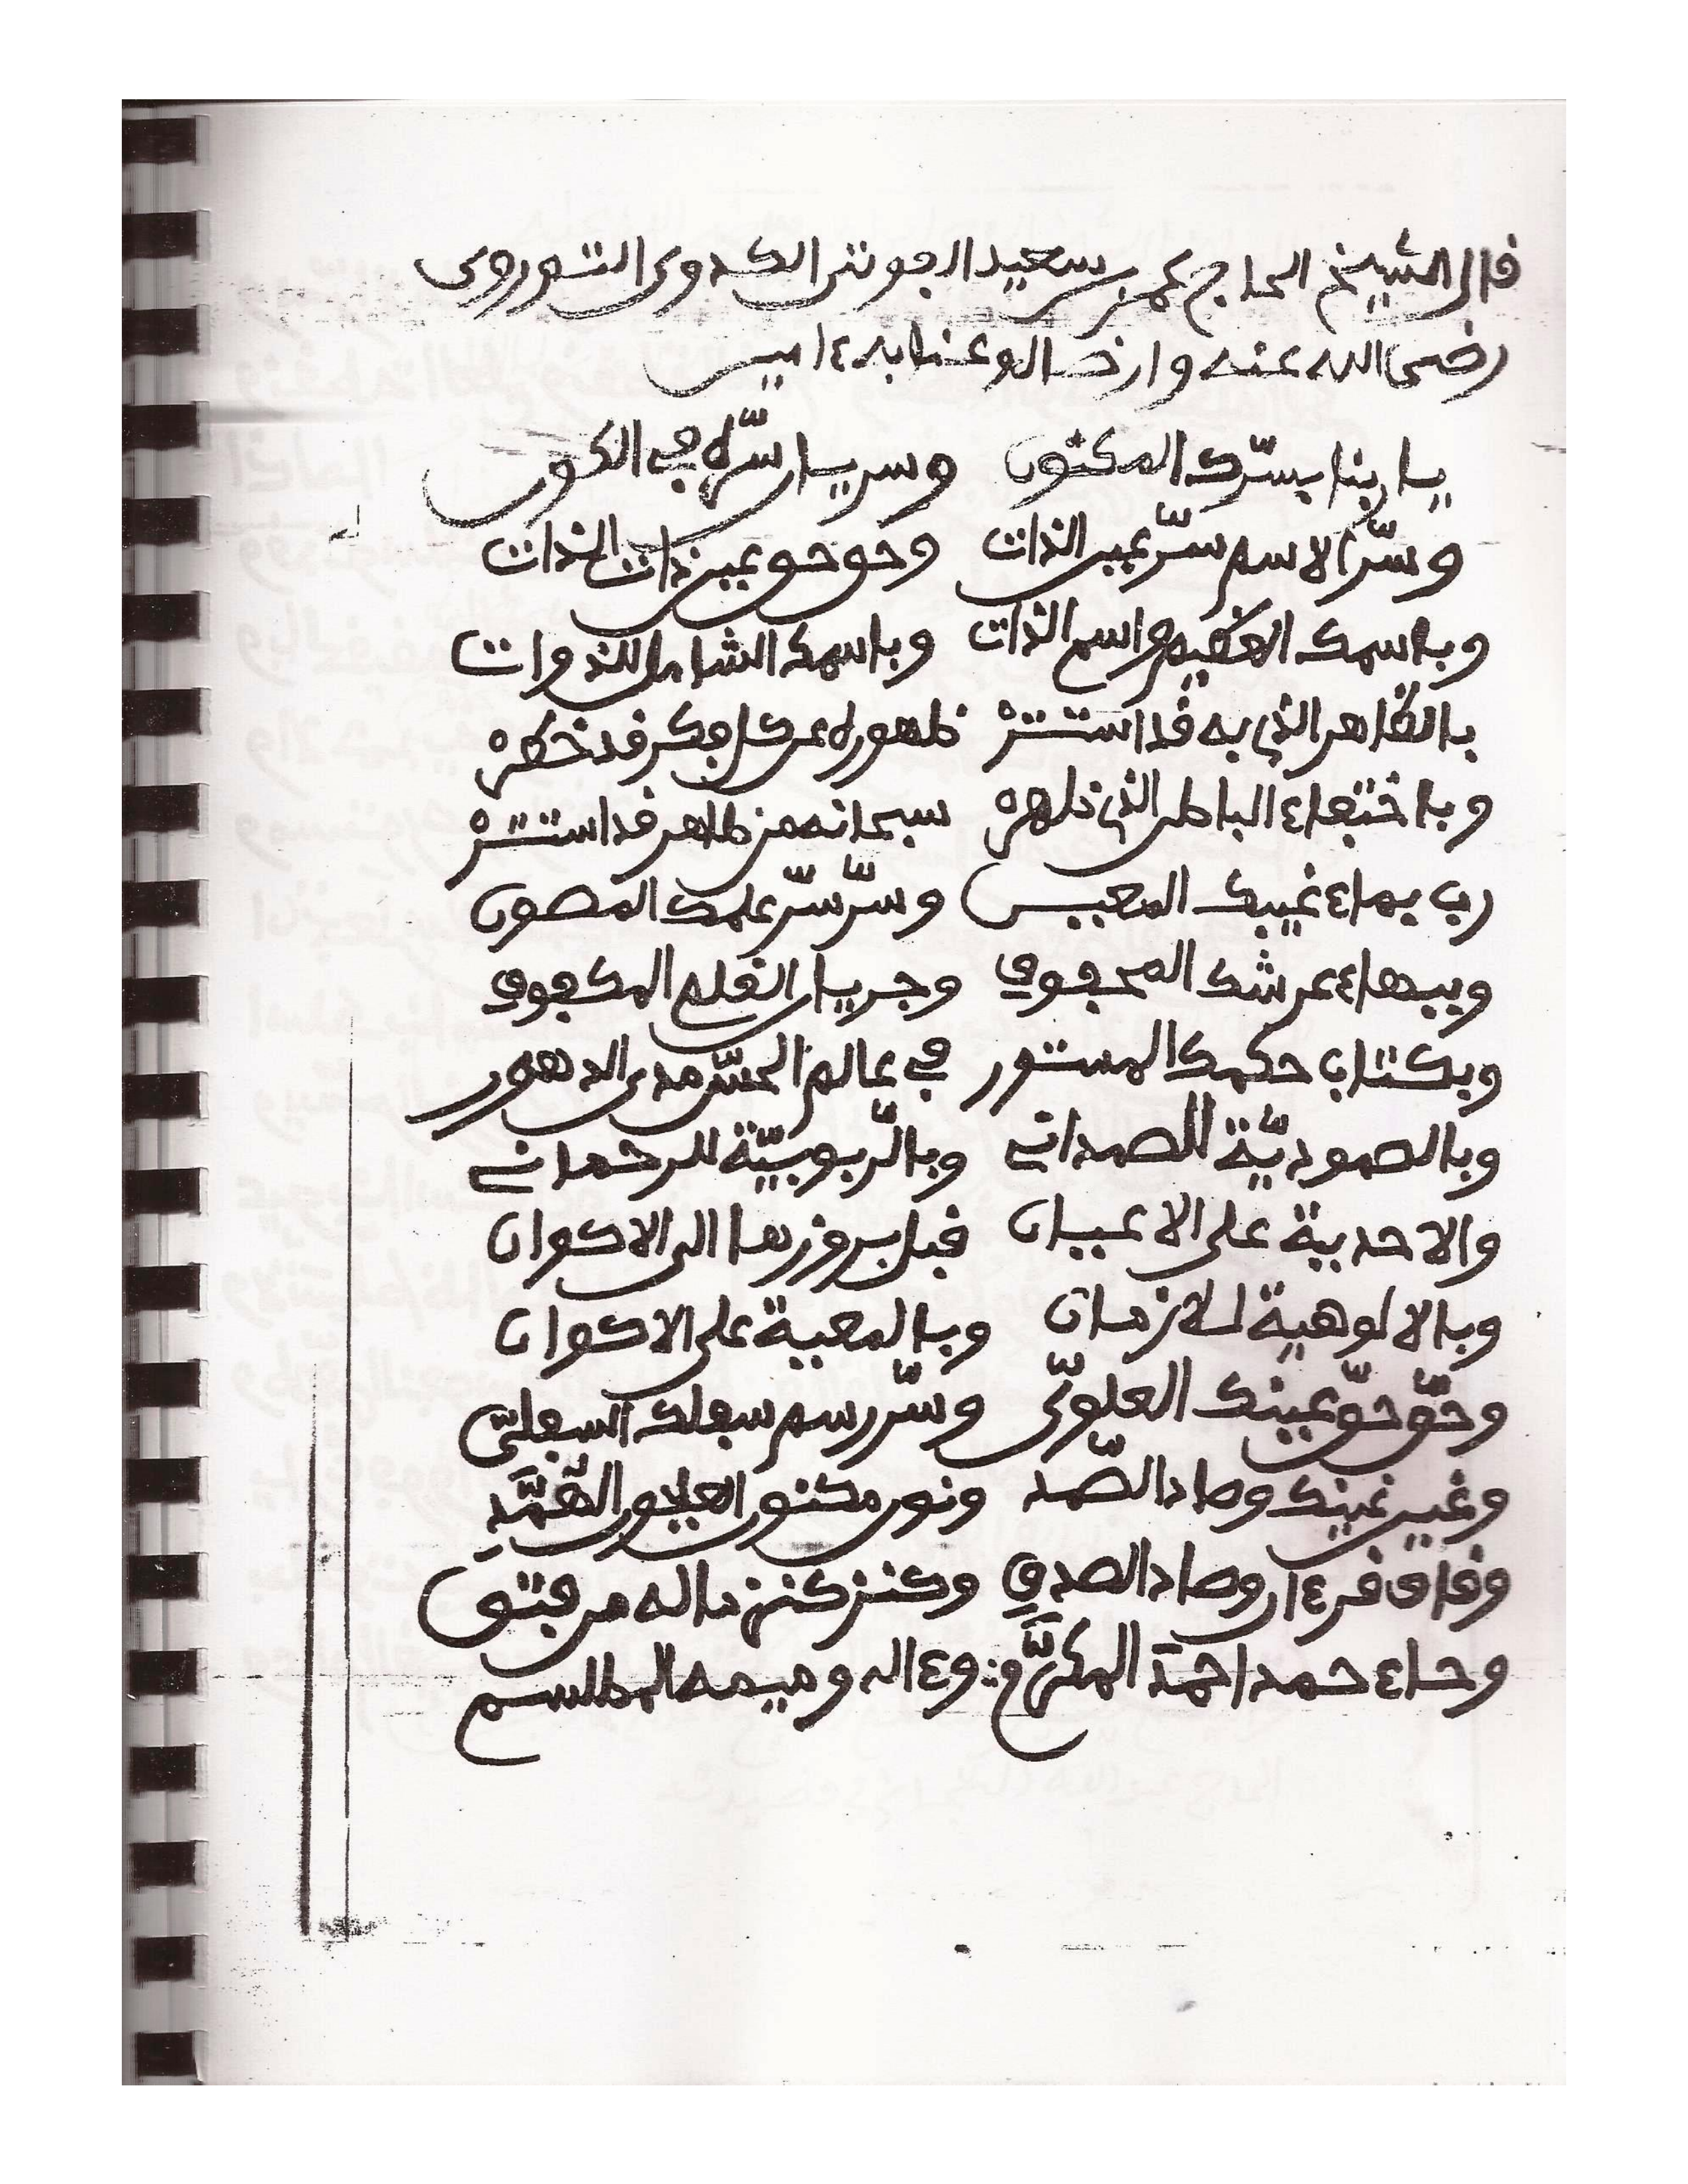 قال الشيخ الحاج عمر بن سعيد الفوتي الكدوي التوروي
رضى الله عنه وارضاه وعنا به ءامين
يا ربنا بسرّك المكتون وسر يا سرّه في الكون
وسرّ الاسم سرّ عين الذات وحق حق عين ذات الذات
وباسمك العظيم اسم الذات وباسمك الشامل للذوات
بالظاهر الذي به قد استتر ظهوره عن كل فكر قد خطر
وباختفاء الباطن الذي ظهر سبحانه من ظاهر قد استتر
رب بهاء غيبك المعين وسرّ سرّ علمك المصون
وببهاء عرشك المحفوف وجريان القلم المكفوف
وبكتاب حكمك المستور في عالم الحسّ مدى الدهور
وبالصموديّة للصمداني وبالرّبوبيّة للرحماني
والاحدية على الاعيان قبل بروزها الى الاكوان
وبالالوهية للازمان وبالمعية على الاكوان
وحقّ حقّ عينك العلويّ وسرّ رسم سفلك السفليّ
وغين غينك وصاد الصّمد ونون مكنون العلوي الصّمَّدِ
وقاف قرءان وصاد الصدق وكنز كنز ماله من فتق
وحاء حمد احمد المكرَّم وءاله وميمه المطلسم